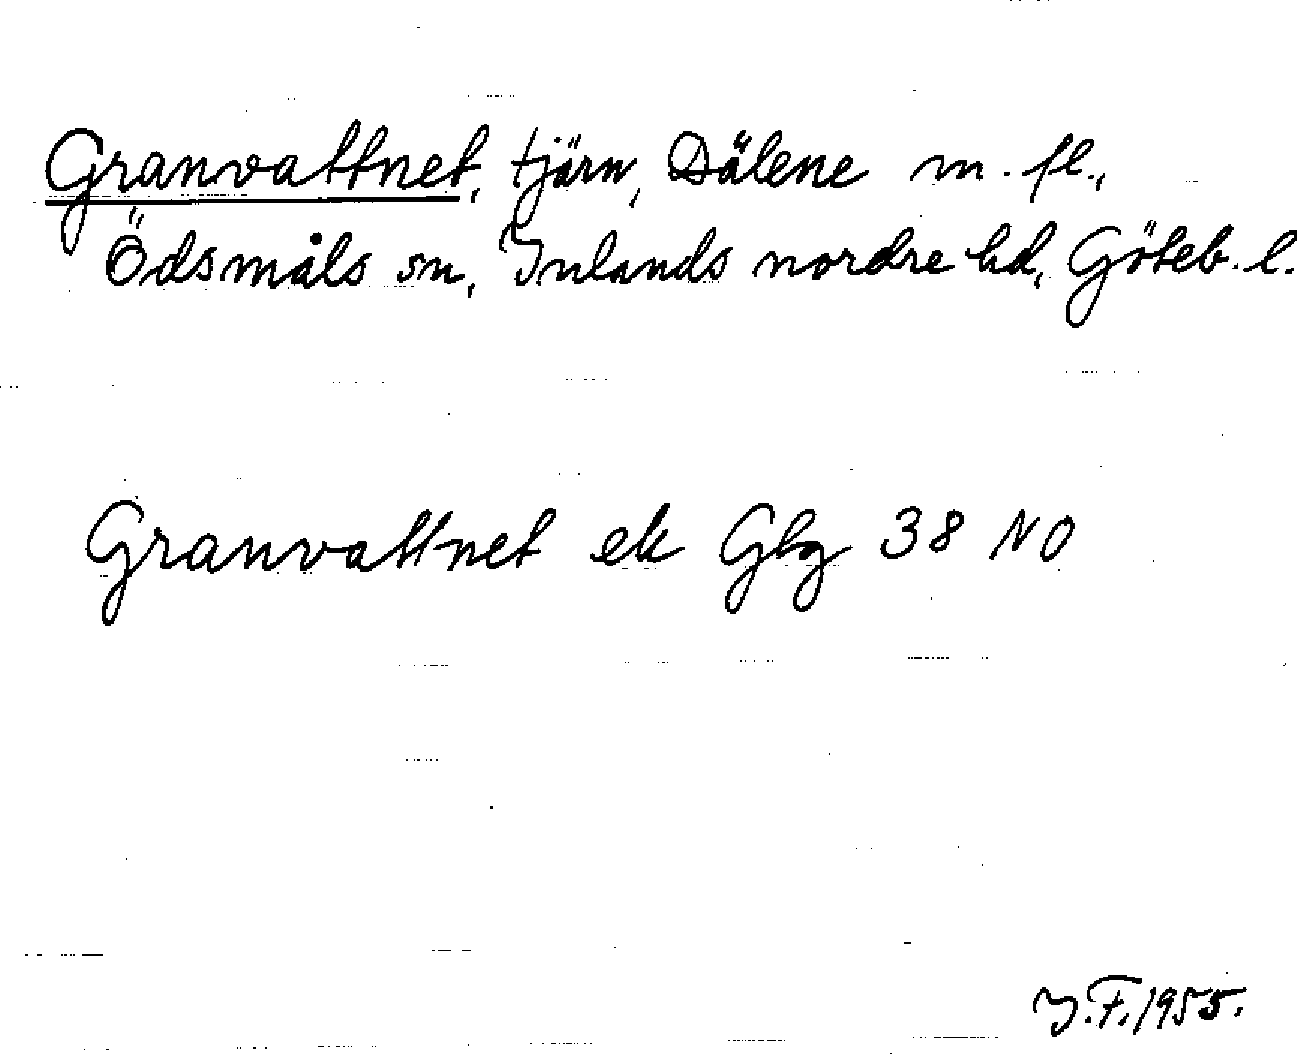 Granvattnet, tjärn, Dälene m. fl.,
Ödsmåls sn, Inlands nordre hd, Göteb. l.
Granvattnet ek Gbg 38 NO
I.F. 1955.